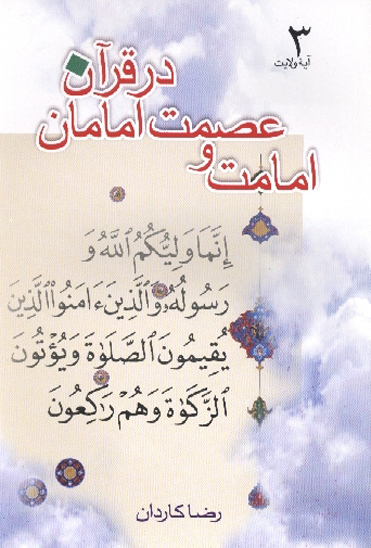 ۳
آیهٔ ولایت
امامت و عصمت امامان در قرآن
إِنَّمَا وَلِيُّكُمُ ٱللَّهُ وَ
رَسُولُهُۥ وَٱلَّذِينَ ءَامَنُوا۟ ٱلَّذِينَ
يُقِيمُونَ ٱلصَّلَوٰةَ وَيُؤْتُونَ
ٱلزَّكَوٰةَ وَهُمْ رَٰكِعُونَ
رضا کاردان